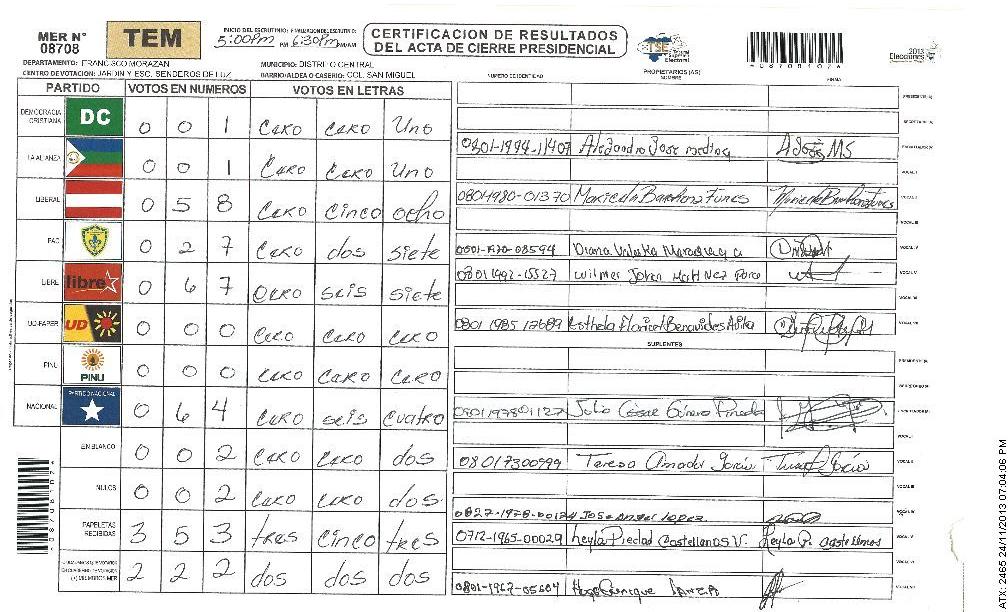 MER N° 08708
TEM
INICIO DEL ESCRUTINIO: 5:00Pm PM FINALIZACION DEL ESCRUTINIO: 6:30Pm PM/AM
CERTIFICACION DE RESULTADOS
DEL ACTA DE CIERRE PRESIDENCIAL
TSE Tribunal Supremo Electoral
2013 Elecciones
DEPARTAMENTO: FRANCISCO MORAZAN
MUNICIPIO: DISTRITO CENTRAL
CENTRO DE VOTACION: JARDIN Y ESC. SENDEROS DE LUZ
BARRIO/ALDEA O CASERIO: COL. SAN MIGUEL
NUMERO DE IDENTIDAD
PROPIETARIOS (AS)
NOMBRE
FIRMA
PARTIDO VOTOS EN NUMEROS VOTOS EN LETRAS
DEMOCRACIA CRISTIANA DC 0 0 1 CERO CERO UNO
LA ALIANZA 0 0 1 CERO CERO UNO
LIBERAL 0 5 8 CERO CINCO ocho
PAC 0 2 7 CERO dos siete
LIBRE libre 0 6 7 CERO seis siete
UD-FAPER UD 0 0 0 CERO CERO CERO
PINU PINU 0 0 0 CERO CERO CERO
NACIONAL PARTIDO NACIONAL 0 6 4 CERO seis cuatro
EN BLANCO 0 0 2 CERO CERO dos
NULOS 0 0 2 CERO CERO dos
PAPELETAS RECIBIDAS 3 5 3 tres CINCO tres
2 2 2 dos dos dos
PRESIDENTE (A)
SECRETARIO (A)
0801-1994-11407 Alejandro Jose medina
ESCRUTADOR (A)
VOCAL I
Maricela Barahona Funes
VOCAL II
VOCAL III
Diana
VOCAL IV
0801-1992-15327 Wilmer
VOCAL V
0801 1985 17689 Benavides Avila
SUPLENTES
PRESIDENTE (A)
SECRETARIO (A)
Julio César Pineda
ESCRUTADOR (A)
VOCAL I
08017300999 Teresa Amador
VOCAL II
VOCAL III
Jose Angel Lopez.
VOCAL IV
0712-1965-00029 Leyla Piedad Castellanos V. Leyla P. Castellanos
VOCAL V
0801-1967-05604 Hugo Enrique
ATX-2465 24/11/2013 07:04:06 PM